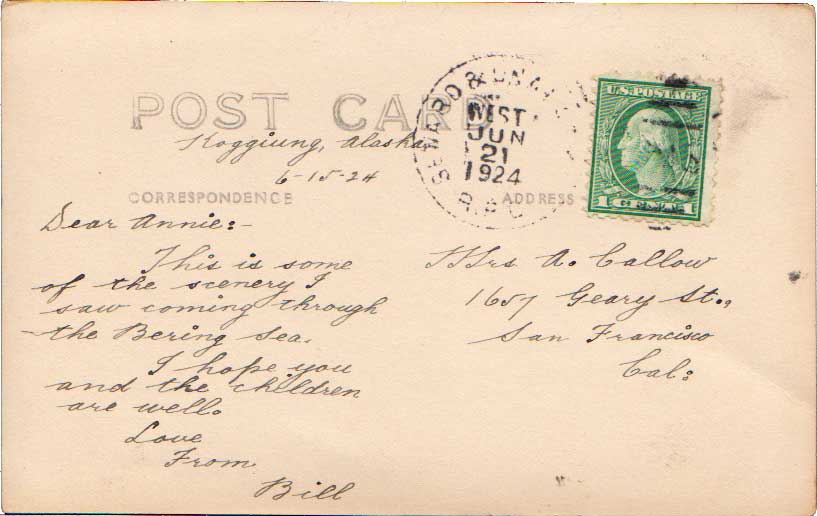 POST CARD
Koggiung, Alaska
6-15-24
CORRESPONDENCE
Dear Annie:-
This is some
of the scenery I
saw coming through
the Bering Sea.
I hope you
and the children
are well.
Love
From
Bill
SEWARD &
WEST
JUN
21
1924
R.P.O.
U.S. POSTAGE
1 CENT 1
ADDRESS
Mrs A. Callow
1657 Geary St.,
San Francisco
Cal: